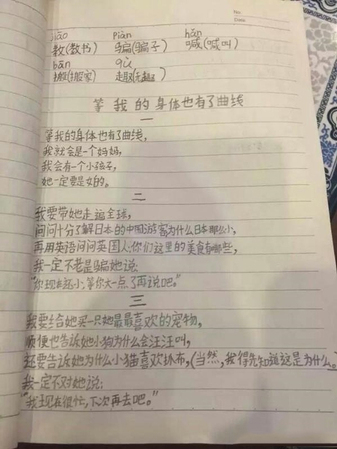 No.
Date.
jiāo piàn hǎn
教(教书) 骗(骗子) 喊(喊叫)
bān qù
搬(搬家) 趣(无趣)
等我的身体也有了曲线
一
等我的身体也有了曲线,
我就会是一个妈妈,
我会有一个小孩子,
她一定要是女的。
二
我要带她走遍全球,
问问十分了解日本的中国游客为什么日本那么小,
再用英语问问英国人:你们这里的美食有哪些,
我一定不老是骗她说:
"你现在还小,等你大一点了再说吧。"
三
我要给她买一只她最最喜欢的宠物,
顺便也告诉她小狗为什么会汪汪叫,
还要告诉她为什么小猫喜欢抓布,(当然,我得先知道这是为什么。
我一定不对她说:
"我现在很忙,下次再去吧。"